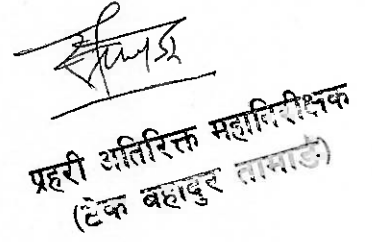 प्रहरी अतिरिक्त महानिरीक्षक
(टेक बहादुर तामाङ)